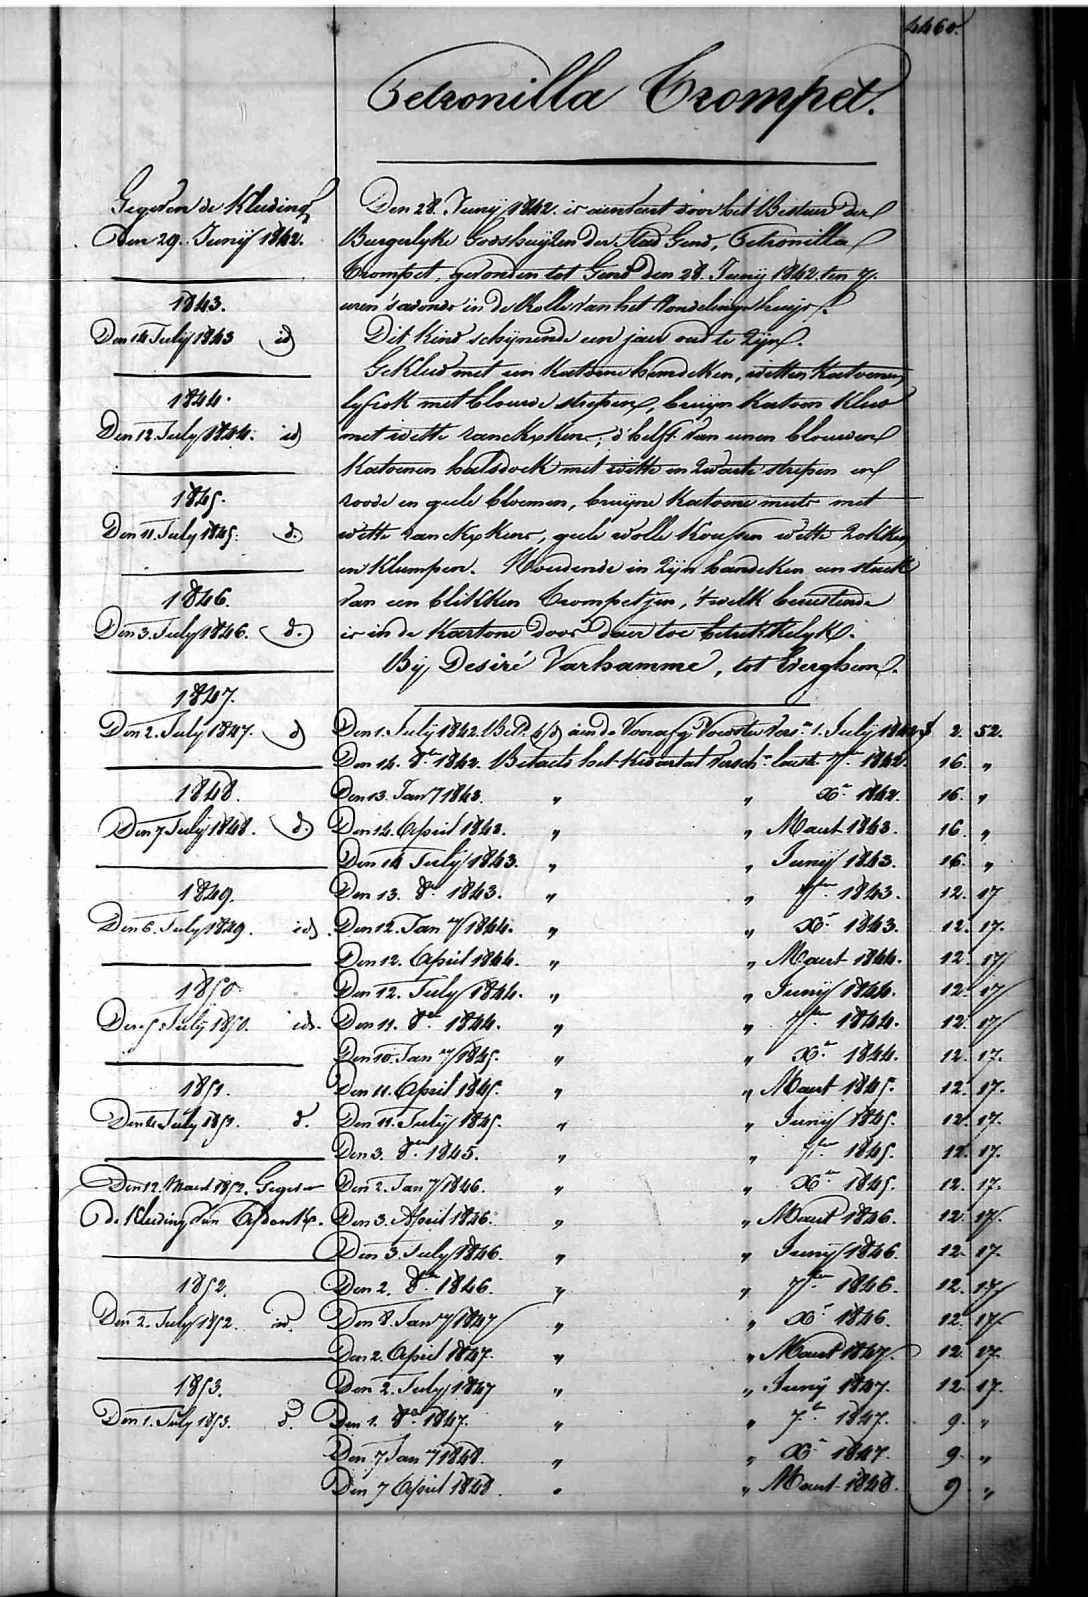 4460.
Petronilla Trompet.
Gegeven de Kleeding
Den 29. Junij 1842.
1843.
Den 14 Julij 1843 id
1844.
Den 12. July 1844. id
1845.
Den 11. July 1845. d.
1846.
Den 3. July 1846. d.
1847.
Den 2. July 1847. d
1848.
Den 7 July 1848. d.
1849.
Den 6. July 1849. id.
1850.
Den 5 July 1850. id.
1851.
Den 4 July 1851. d.
Den 12. Maert 1852. Gegeven
de Kleeding van
1852.
Den 2. July 1852. id.
1853.
Den 1. July 1853. d.
Den 28. Junij 1842. is aenveert door het Bestuer der
Burgerlyke Godshuijzen der Stad Gend, Petronilla
Trompet, gevonden tot Gend den 28. Junij 1842. ten 7.
uren 's avonds in de Rolle van het Vondelingshuijs.
Dit kind schijnende een jaer oud te zijn.
Gekleed met een katoene hemdeken, witten katoenen
lyfrok met blauwe strepen, bruijn katoen kleed
met witte ranckxkens, d'helft van eenen blauwen
katoenen halsdoek met witte en zwarte strepen en
roode en geele bloemen, bruijne katoene muts met
witte ranckxkens, geele wolle koussen witte zokken
en klompen. Houdende in zijn handeken een stuck
van een blikken trompetjen, 't welk berustende
is in de kartone doos daer toe betrekkelyk.
Bij Desiré Varhamme, tot Everghem.
Den 1. Julij 1842. Bet. aende Voorafg. Voedster Vers. 1. Julij 1842 f 2. 52.
Den 14. 8bre 1842. Betaelt het kwartal versch. laeste 7bre 1842. 16. "
Den 13. Jany 1843. " " Xbre 1842. 16. "
Den 14. April 1843. " " Maert 1843. 16. "
Den 14 Julij 1843. " " Junij 1843. 16. "
Den 13. 8bre 1843. " " 7bre 1843. 12. 17
Den 12. Jany 1844. " " Xbre 1843. 12. 17.
Den 12. April 1844. " " Maert 1844. 12. 17
Den 12. July 1844. " " Junij 1844. 12. 17
Den 11. 8bre 1844. " " 7bre 1844. 12. 17
Den 10. Jany 1845. " " Xbre 1844. 12. 17.
Den 11. April 1845. " " Maert 1845. 12. 17.
Den 11. Julij 1845. " " Junij 1845. 12. 17.
Den 3. 8bre 1845. " " 7bre 1845. 12. 17.
Den 2. Jany 1846. " " Xbre 1845. 12. 17.
Den 3. April 1846. " " Maert 1846. 12. 17.
Den 3. July 1846. " " Junij 1846. 12. 17.
Den 2. 8bre 1846. " " 7bre 1846. 12. 17
Den 8. Jany 1847 " " Xbre 1846. 12. 17.
Den 2. April 1847. " " Maert 1847. 12. 17.
Den 2. July 1847 " " Junij 1847. 12. 17.
Den 1. 8bre 1847. " " 7bre 1847. 9. "
Den 7 Jany 1848. " " Xbre 1847. 9. "
Den 7 April 1848 " " Maert 1848. 9 "